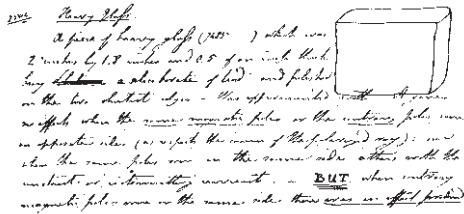 Heavy Glass.
A piece of heavy glass (7485) which was
2 inches by 1.8 inches and 0.5 of an inch thick
being a silico borate of lead and polished
on the two shortest edges - was experimented with. It gave
no effects when the same magnetic poles or the contrary poles were
on opposite sides (as respects the course of the polarized ray): nor
when the same poles were on the same side either with the
constant or intermitting current - BUT when contrary
magnetic poles were on the same side there was an effect produced